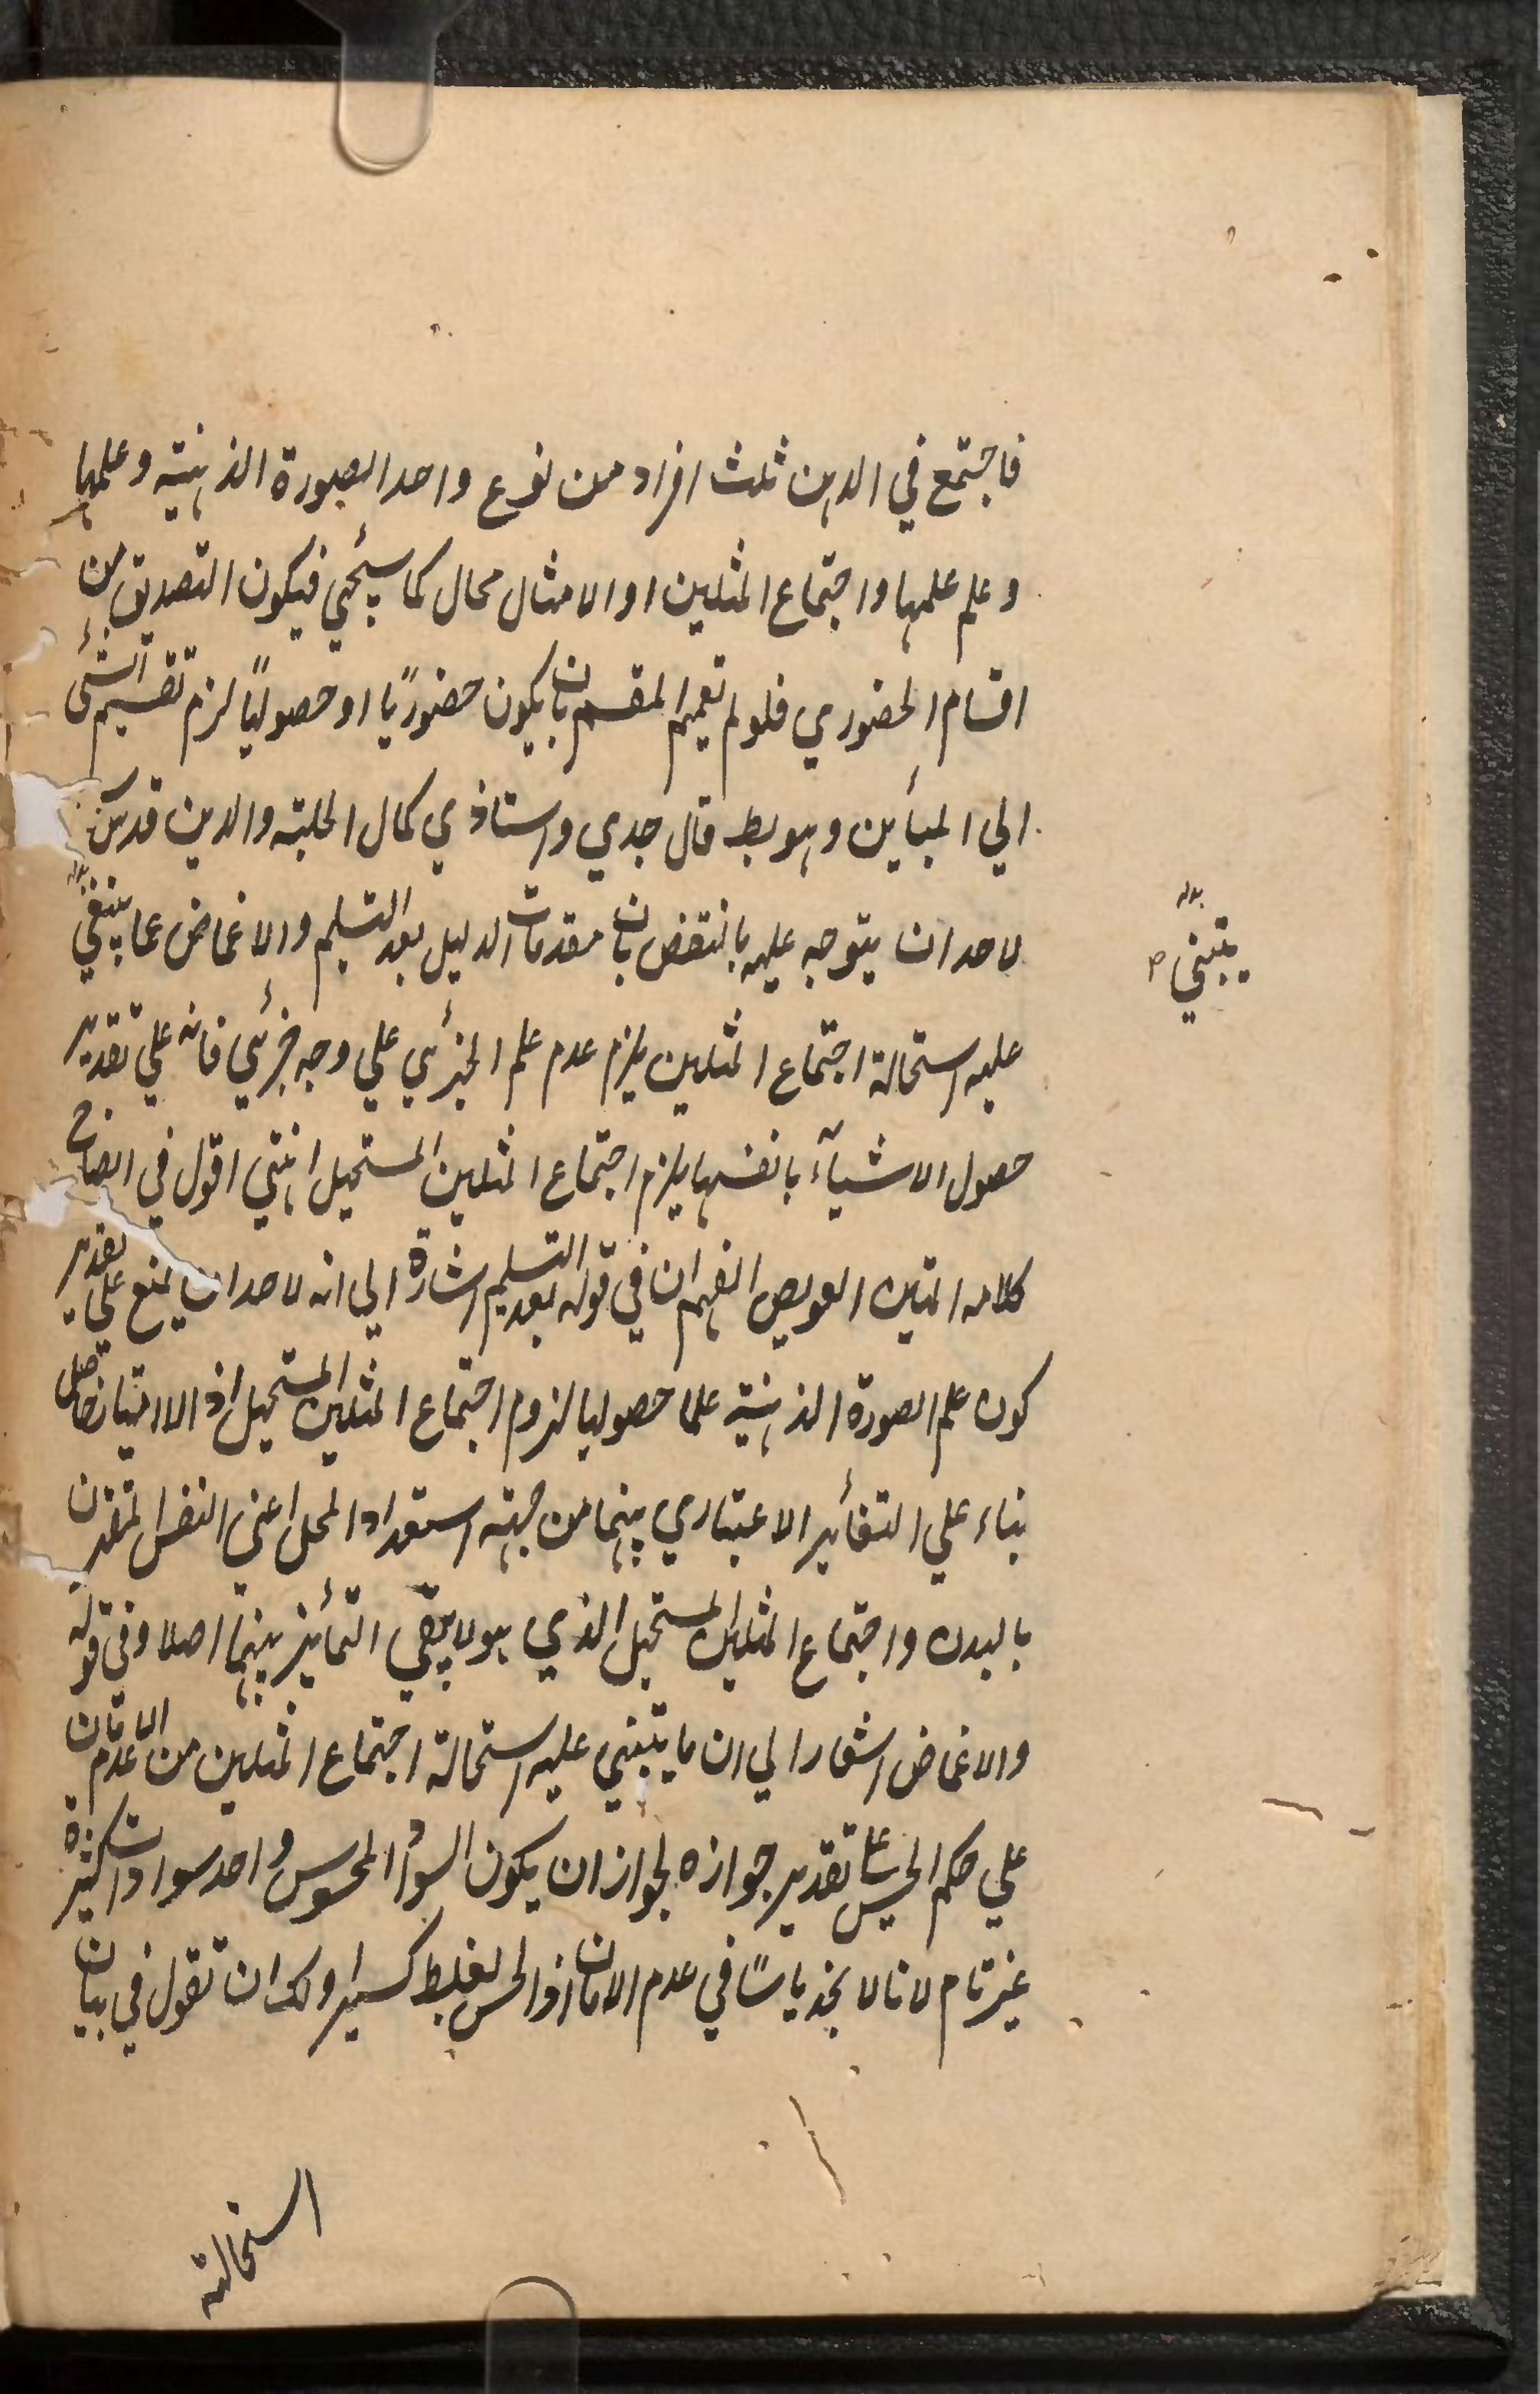 فاجتمع في الذهن ثلث افراد من نوع واحد الصورة الذهنية وعلمها
وعلم علمها واجتماع المثلين او الامثال محال كما سيجئي فيكون التصديق من
اقسام الحضوري فلو لم تعميم المقسم بان يكون حضوريًا او حصوليًا لزم تقسيم الشئ
الي المبأين وهو بط قال جدي واستاذي كمال الملة والدين قدس
لاحد ان يتوجه عليه بالنقض بان مقدمات الدليل بعد التسليم والاغماض عما يبتغي
عليه استحالة اجتماع المثلين يلزم عدم علم الجزئي علي وجه جزئي فانه علي تقدير
حصول الاشيآء بانفسها يلزم اجتماع المثلين المستحيل انتهي اقول في ايضاح
كلامه المتين العويص الفهم ان في قوله بعد التسليم اشارة الي انه لاحد ان يمنع علي تقدير
كون علم الصورة الذهنية علما حصوليا لزوم اجتماع المثلين المستحيل اذ الامتياز حاصل
بناء علي التغأير الاعتباري بينهما من جهة استعداد المحل اعني النفس المقترن
بالبدن واجتماع المثلين المستحيل الذي هو لا يبقي التمأيز بينهما اصلا وفي قوله
والاغماض اشعار الي ان ما يبتني عليه استحالة اجتماع المثلين من عدم الامان
علي حكم الحس علي تقدير جوازه لجواز ان يكون السواد المحسوس واحد سوادات كثيرة
غير تام لانا لا نجد باسًا في عدم الامان اذ الحس يغلط كسيرا ولك ان تقول في بيان
استحالته
بدله
يبتني